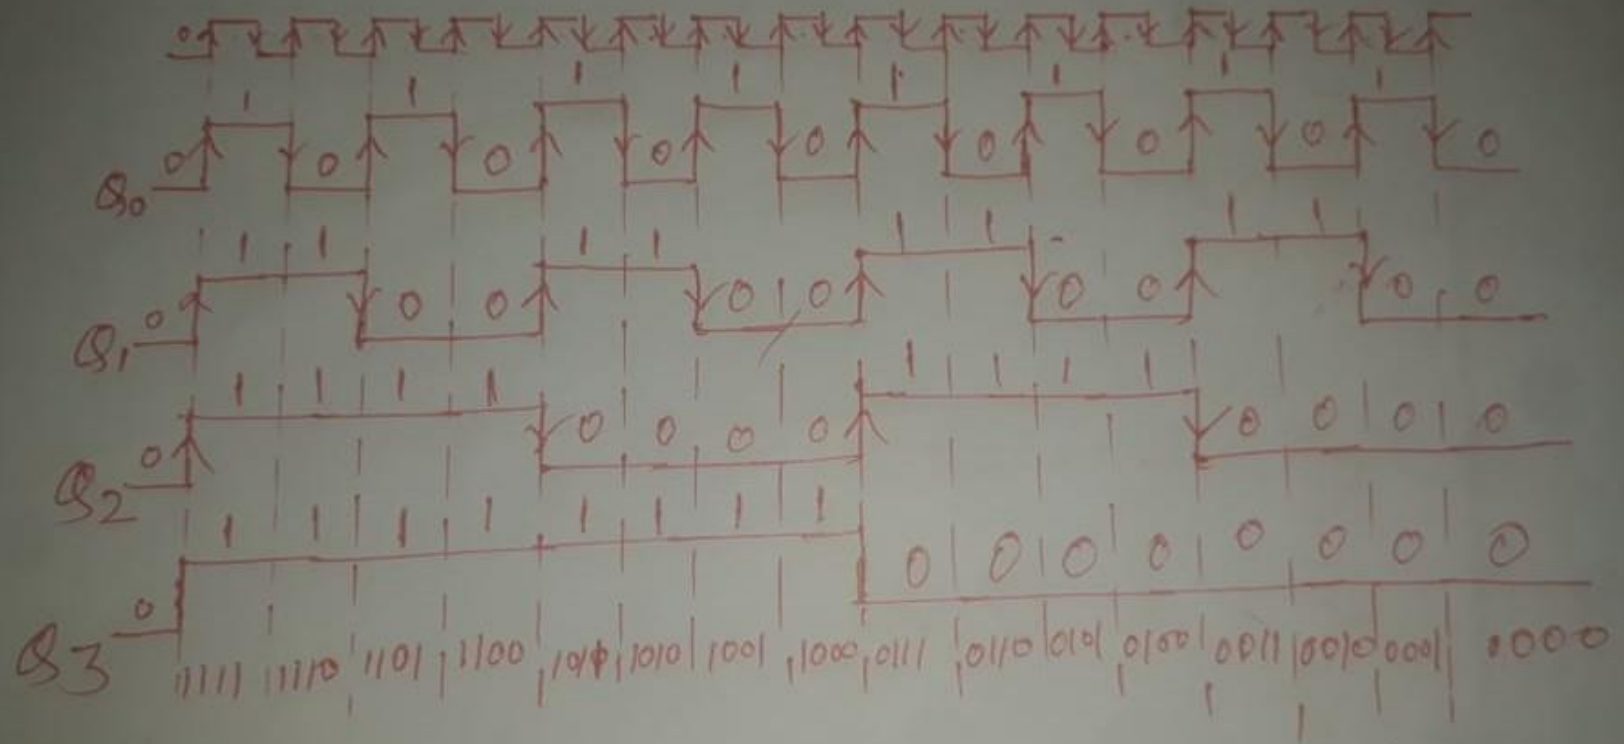 0
Q0 0 1 0 1 0 1 0 1 0 1 0 1 0 1 0 1 0
Q1 0 1 1 0 0 1 1 0 0 1 1 0 0 1 1 0 0
Q2 0 1 1 1 1 0 0 0 0 1 1 1 1 0 0 0 0
Q3 0 1 1 1 1 1 1 1 1 0 0 0 0 0 0 0 0
1111 1110 1101 1100 1010 1001 1000 0111 0110 0101 0100 0011 0010 0001 0000